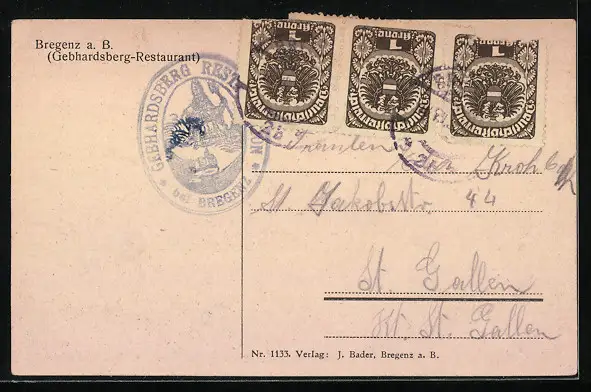 Bregenz a. B.
(Gebhardsberg-Restaurant)
GEBHARDSBERG REST
bei BREGENZ
1 Krone 1 Krone 1 Krone
Deutschösterreich Deutschösterreich Deutschösterreich
Fräulein
St. Jakobstr. 44
St Gallen
Kt. St. Gallen
Nr. 1133. Verlag: J. Bader, Bregenz a. B.